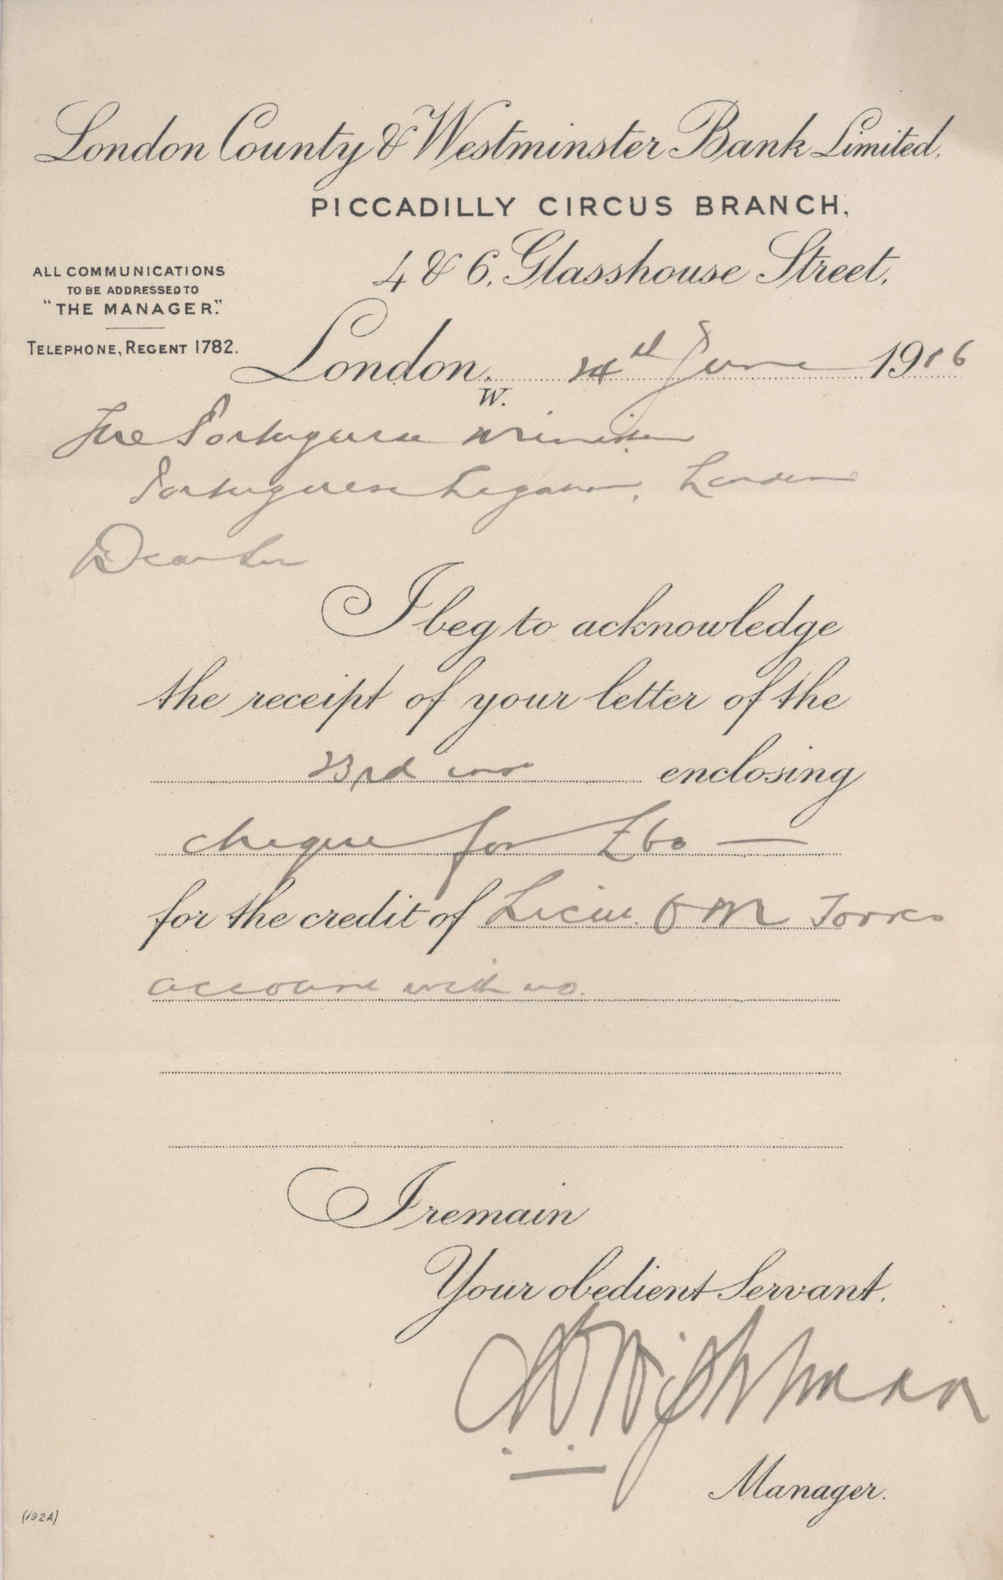 London County & Westminster Bank Limited.
PICCADILLY CIRCUS BRANCH,
4 & 6, Glasshouse Street,
ALL COMMUNICATIONS
TO BE ADDRESSED TO
"THE MANAGER."
TELEPHONE, REGENT 1782.
London, W. 24th June 1916
The Portuguese Minister
Portuguese Legation, London
Dear Sir
I beg to acknowledge
the receipt of your letter of the
23rd inst enclosing
cheque for £60 —
for the credit of Lieut. O M Torres
account with us.
I remain
Your obedient Servant.
Wightman
Manager.
(192A)